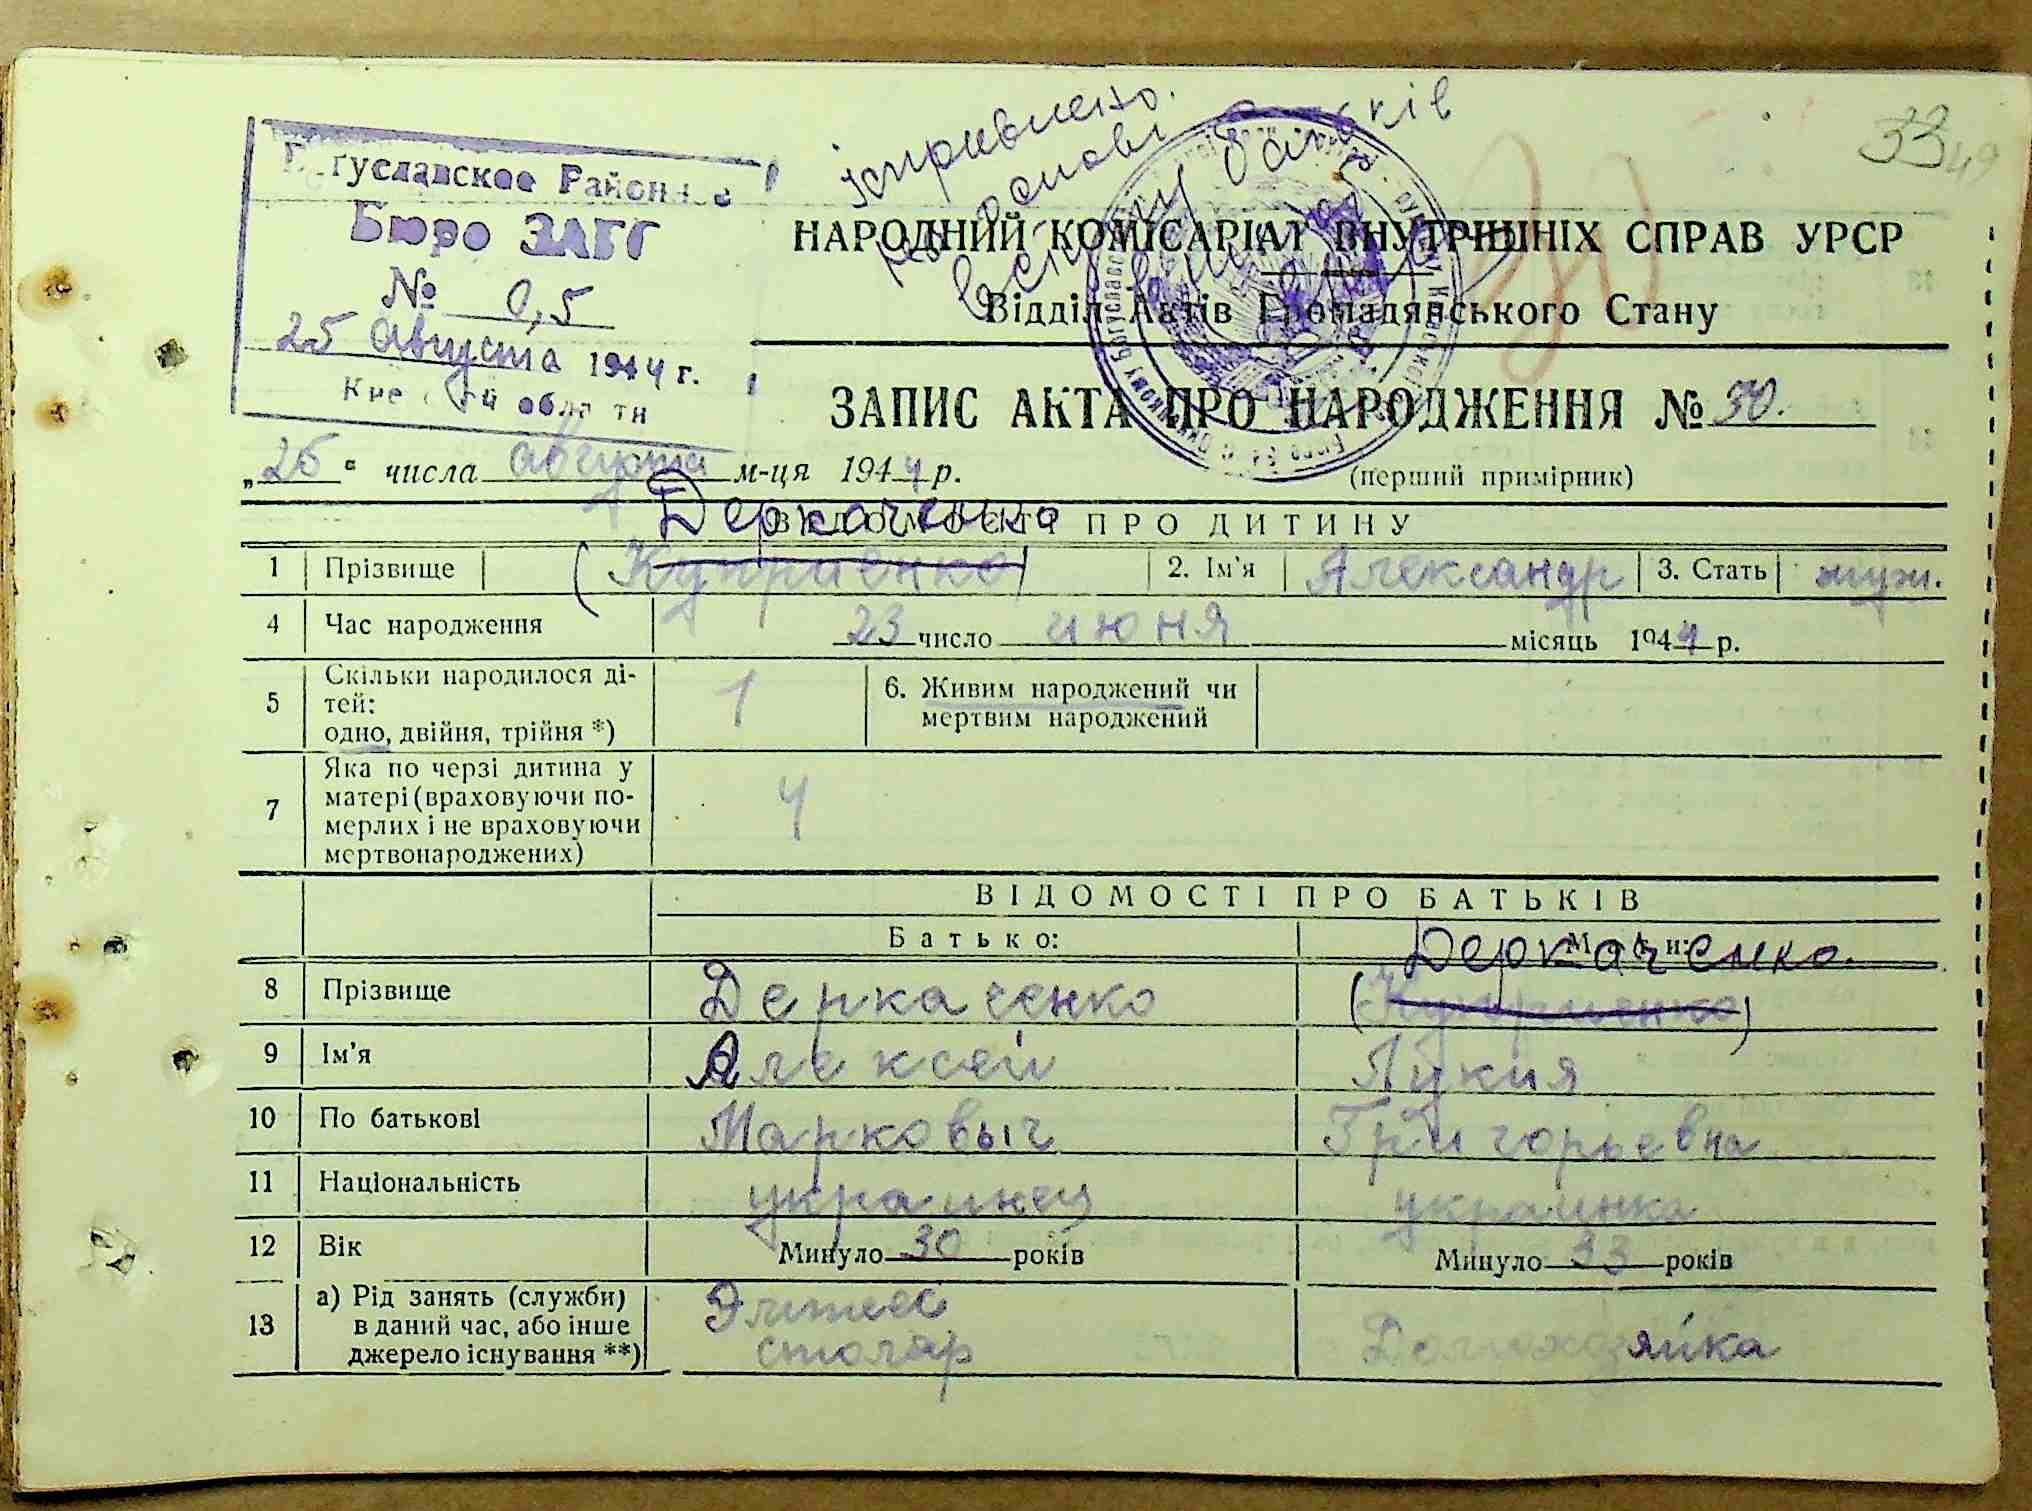 Богуславское Районное
Бюро ЗАГС
№ 0,5
25 Августа 1944 г.
Киевской области
33 49
исправлено.
на основі
батьків
НАРОДНИЙ КОМІСАРІАТ ВНУТРІШНІХ СПРАВ УРСР
Відділ Актів Громадянського Стану
ЗАПИС АКТА ПРО НАРОДЖЕННЯ № 30.
„25“ числа августа м-ця 1944 р.
(перший примірник)
Деркаченко
ВІДОМОСТІ ПРО ДИТИНУ
1 Прізвище (Куприенко) 2. Ім'я Александр 3. Стать муж.
4 Час народження 23 число июня місяць 1944 р.
5 Скільки народилося ді-
тей:
одно, двійня, трійня *) 1
6. Живим народжений чи
мертвим народжений
7 Яка по черзі дитина у
матері (враховуючи по-
мерлих і не враховуючи
мертвонароджених) 4
ВІДОМОСТІ ПРО БАТЬКІВ
Батько: Мати:
Деркаченко.
8 Прізвище Деркаченко (Куприенко)
9 Ім'я Алексей Лукия
10 По батькові Марковыч Григорьевна
11 Національність украинец украинка
12 Вік Минуло 30 років Минуло 33 років
13 а) Рід занять (служби)
в даний час, або інше
джерело існування **)
столяр Домохозяйка